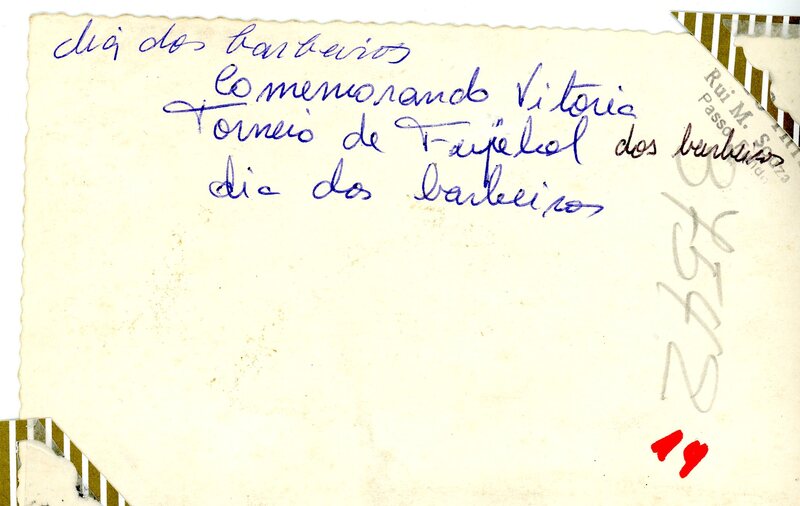 dia dos barbeiros
Comemorando Vitoria
Torneio de Futebol dos barbeiros
dia dos barbeiros
Rui M. Souza
37542
19